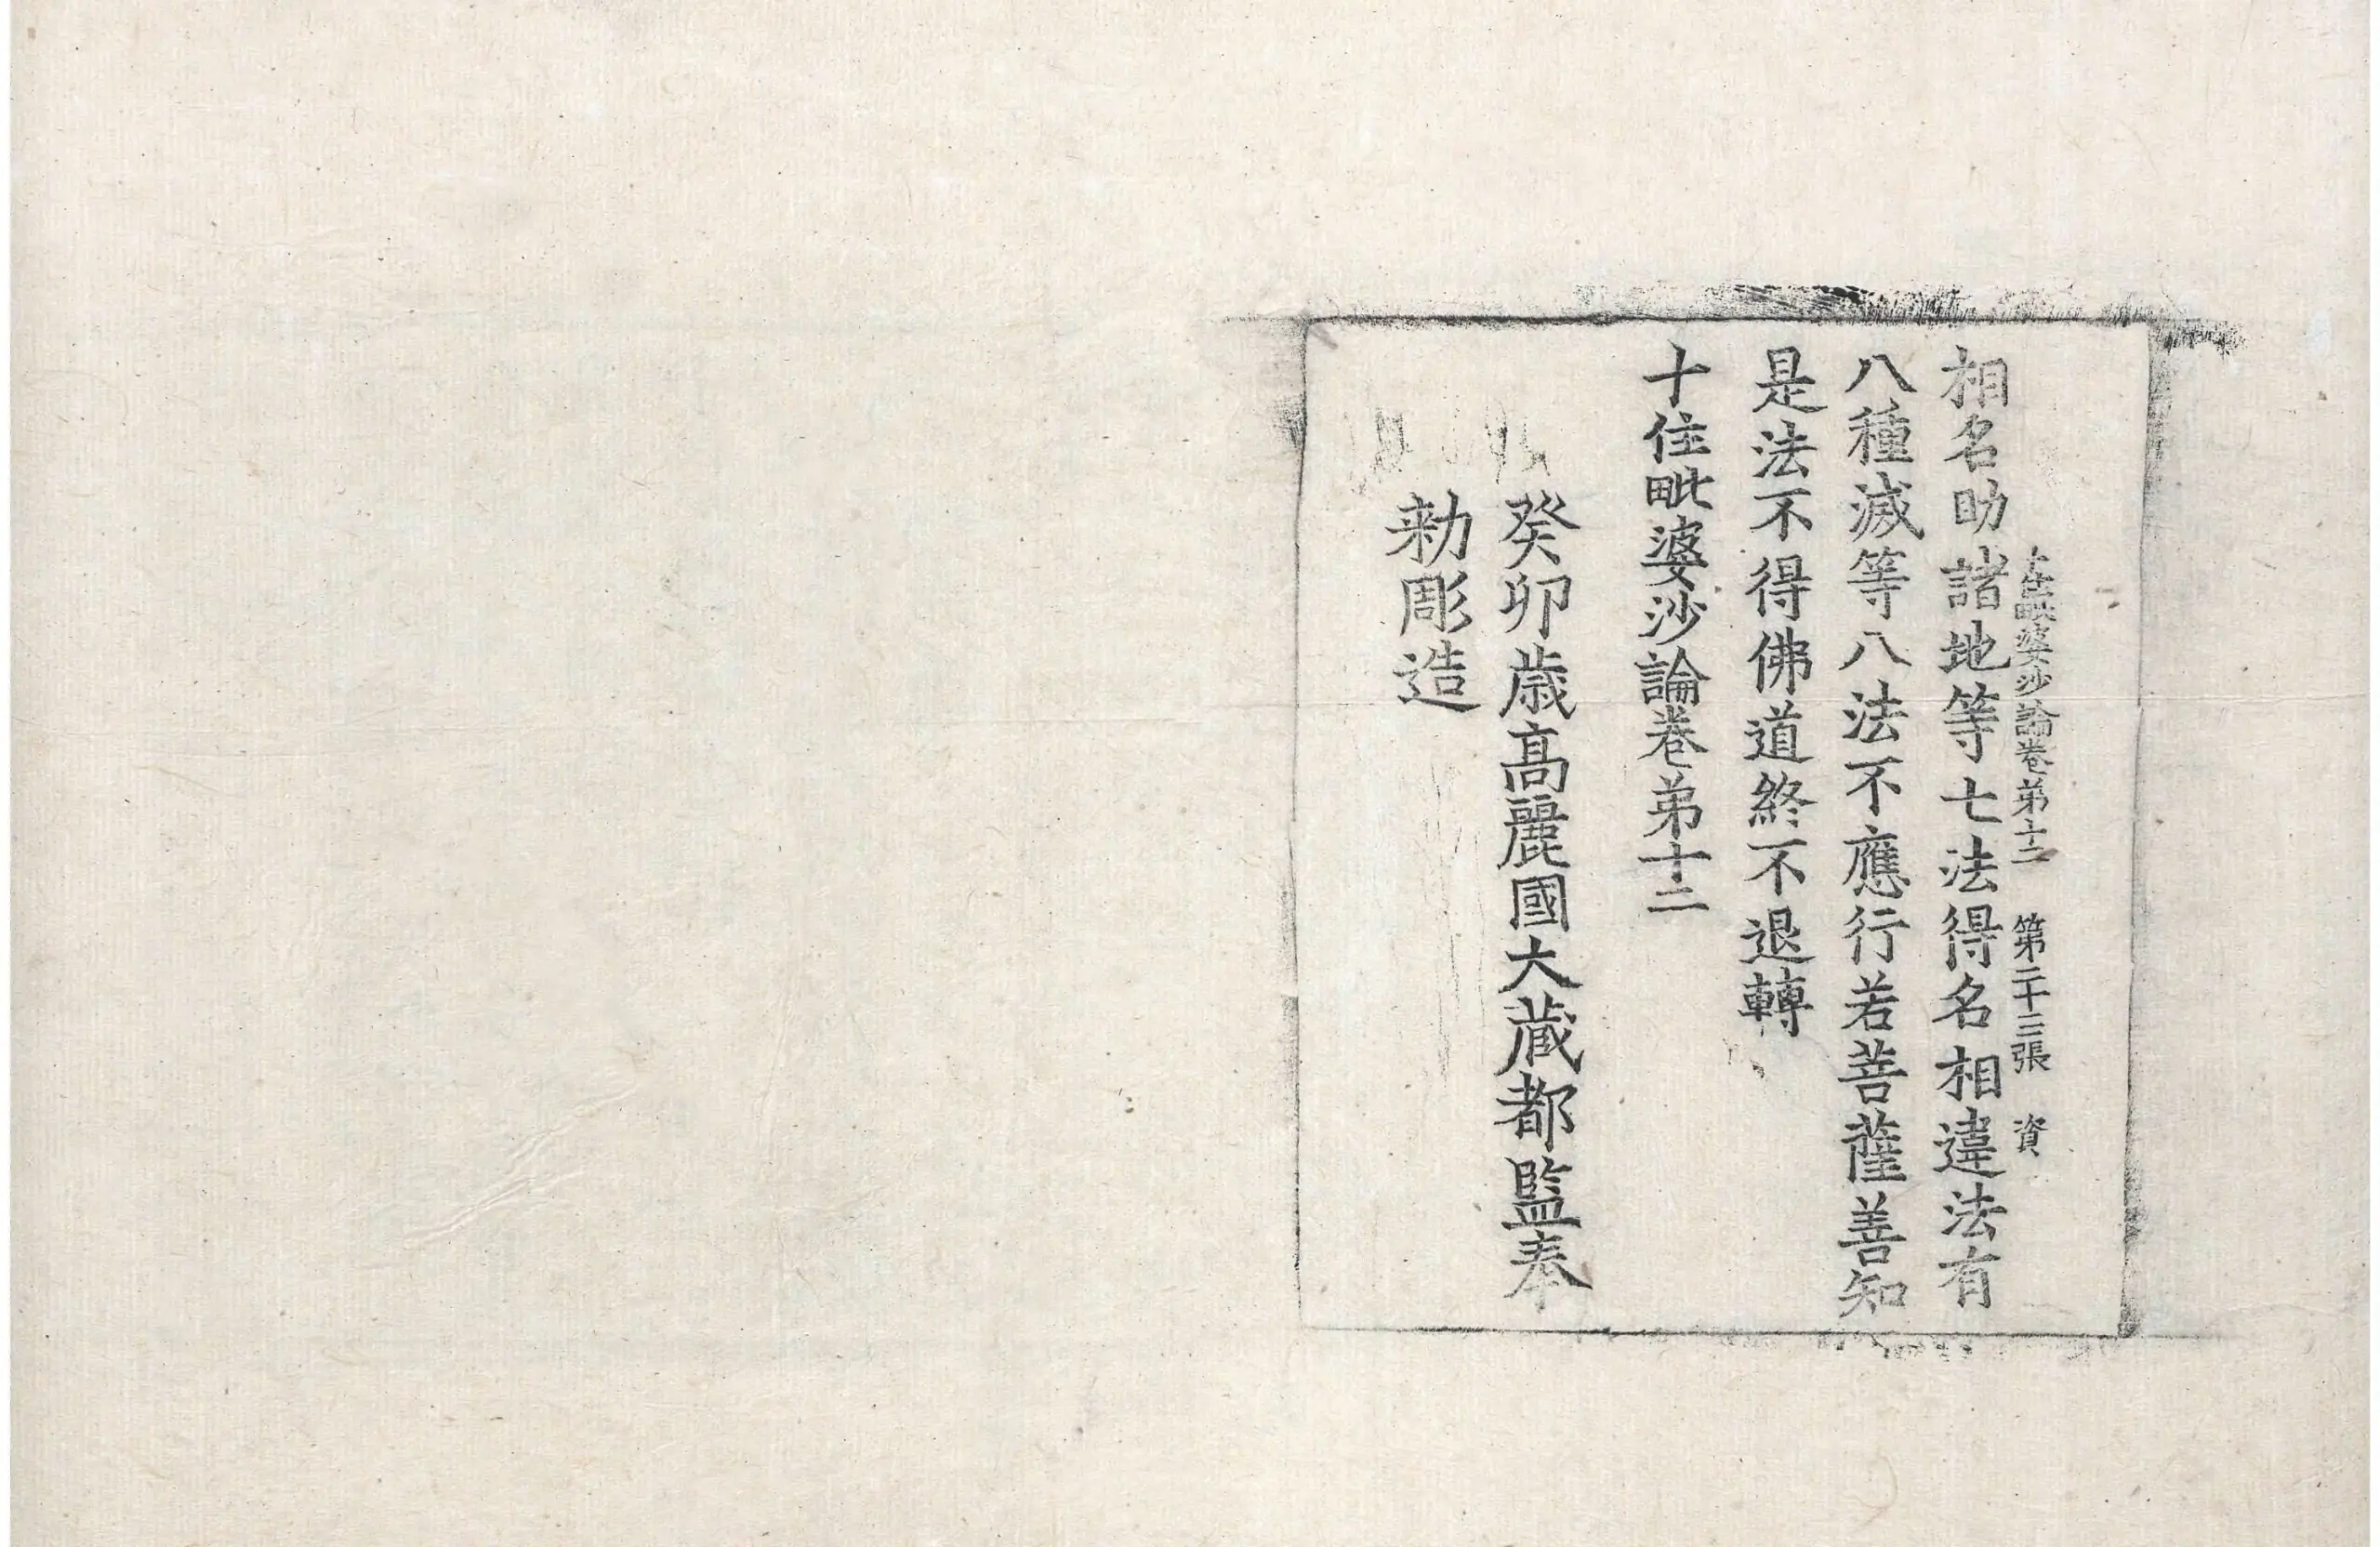 十住毗婆沙論卷苐十二 第二十三張 資
相名助諸地等七法得名相違法有
八種滅等八法不應行若菩薩善知
是法不得佛道終不退轉
十住毗婆沙論卷苐十二
癸卯歲高麗國大藏都監奉
勑彫造